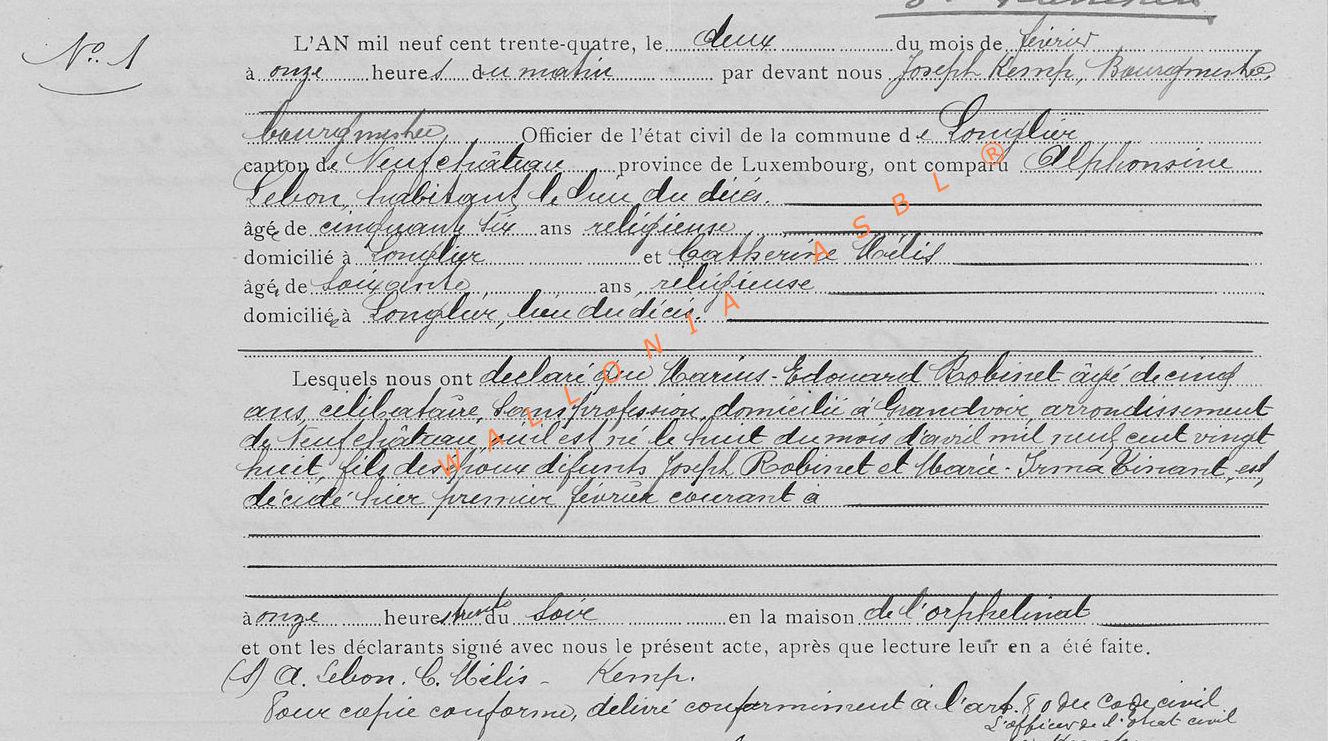 Nº 1
L'AN mil neuf cent trente-quatre, le deux du mois de février
à onze heures du matin par devant nous Joseph Kemp, Bourgmestre,
bourgmestre, Officier de l'état civil de la commune de Longlier
canton de Neufchâteau province de Luxembourg, ont comparu Alphonsine
Lebon, habitant le lieu du décès.
âgée de cinquante six ans religieuse
domicilié à Longlier et Catherine Mélis
âgée de soixante ans, religieuse
domiciliée à Longlier, lieu du décès.
Lesquels nous ont déclaré que Marius-Edouard Robinet âgé de cinq
ans, célibataire, sans profession, domicilié à Grandvoir arrondissement
de Neufchâteau où il est né le huit du mois d'avril mil neuf cent vingt
huit, fils des époux défunts Joseph Robinet et Marie-Irma Tinant, est
décédé hier premier février courant à
à onze heures trente du soir en la maison de l'orphelinat
et ont les déclarants signé avec nous le présent acte, après que lecture leur en a été faite.
(S) A. Lebon. C. Mélis - Kemp.
Pour copie conforme, délivré conformément à l'art. 80 du Code civil
L'officier de l'Etat civil
WALLONIA ASBL ®